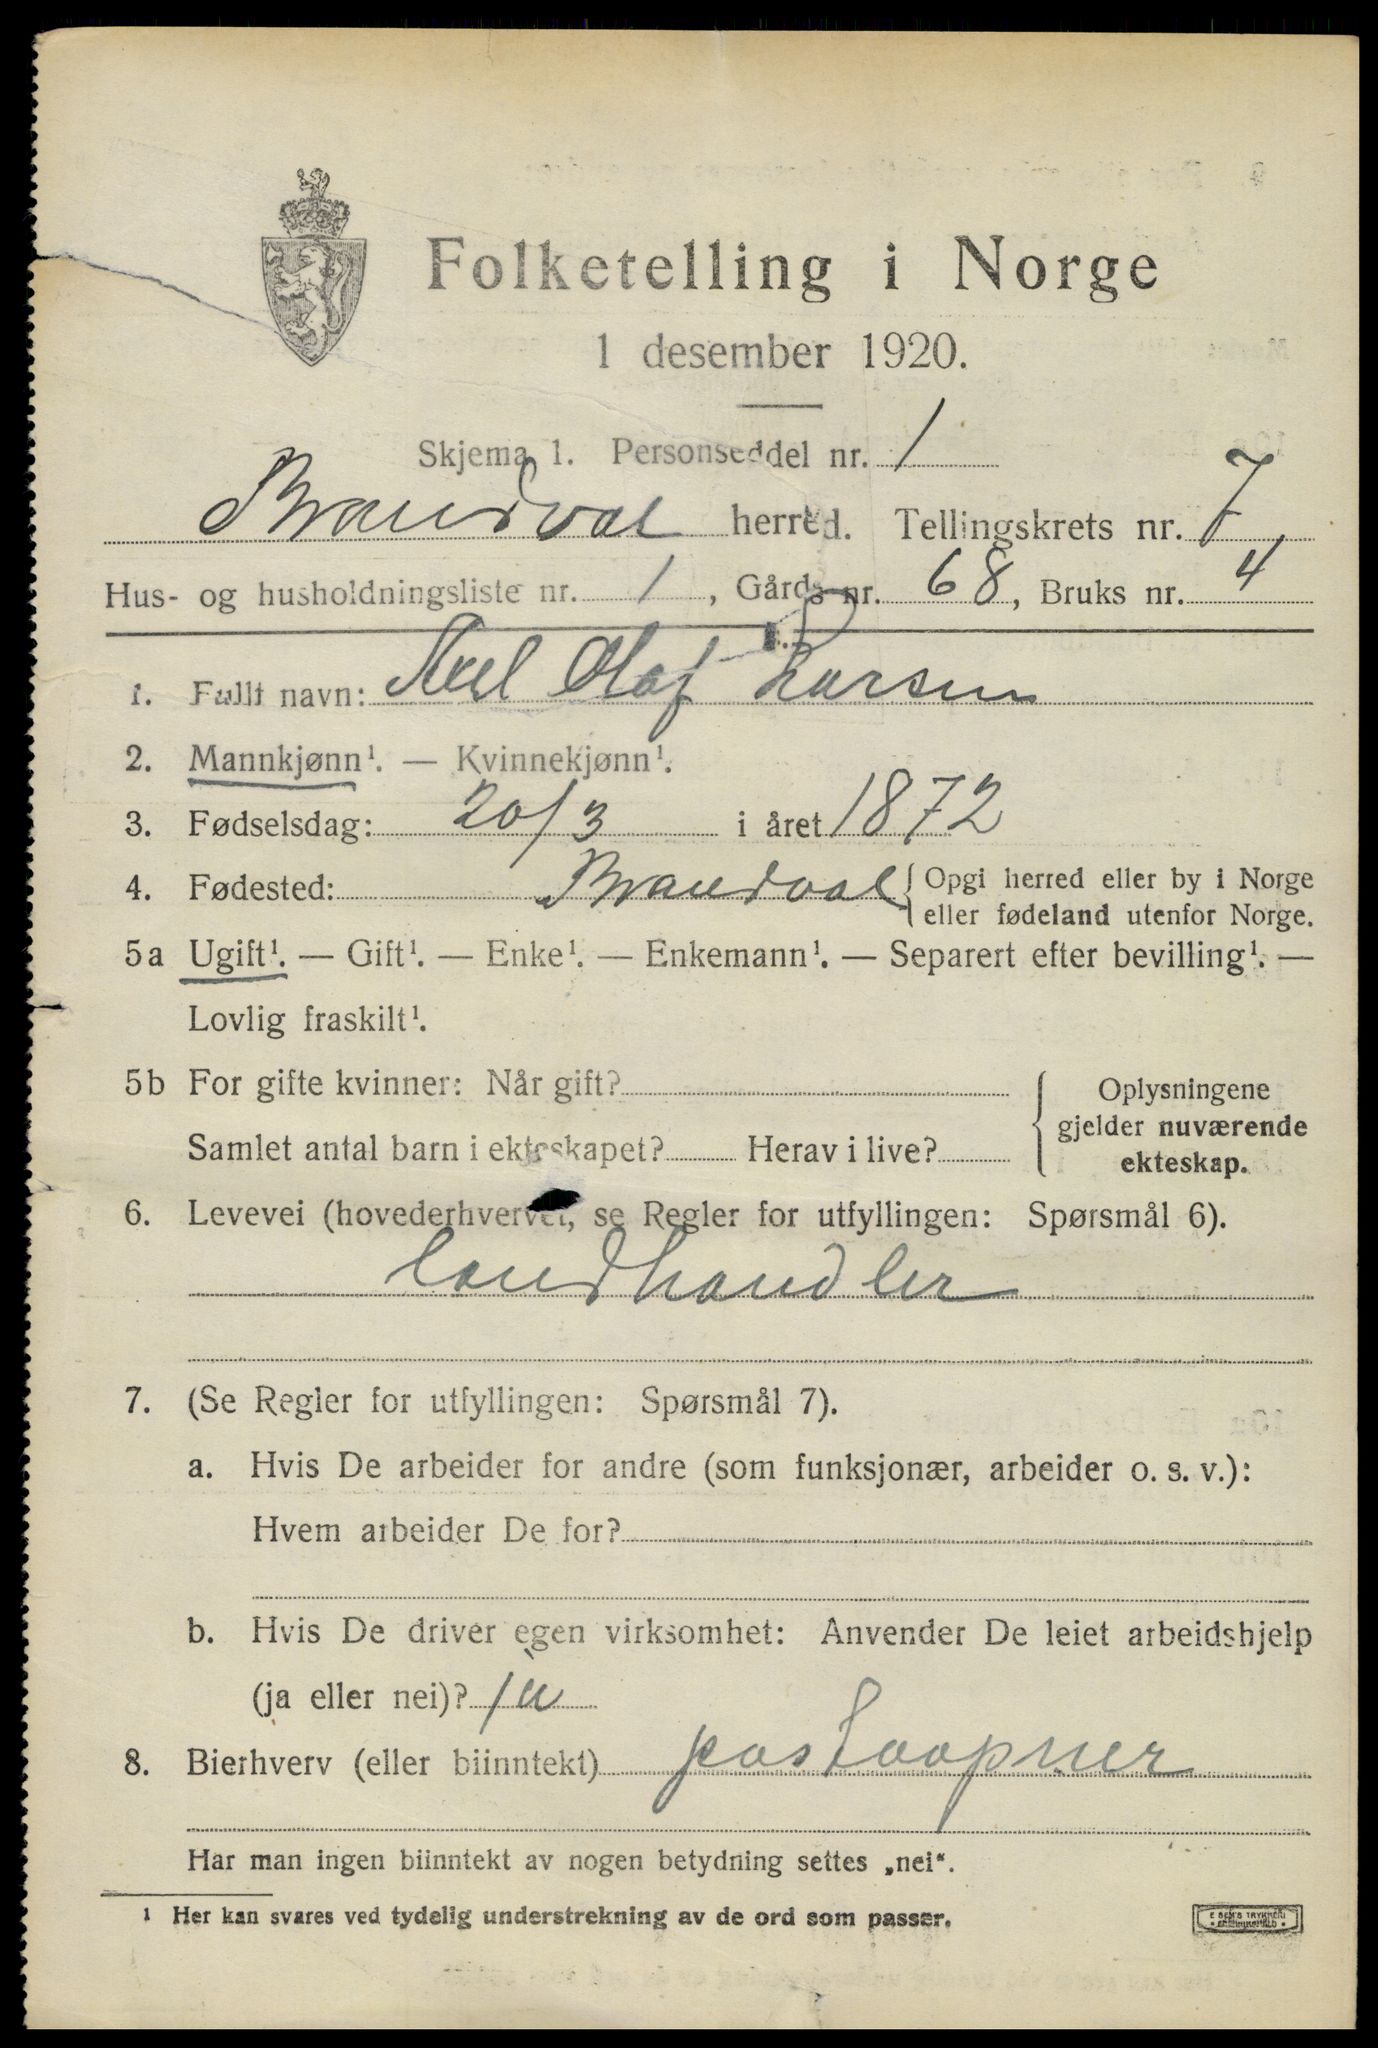 Folketelling i Norge
1 desember 1920.
Skjema 1. Personseddel nr. 1
Brandval herred. Tellingskrets nr. 7
Hus- og husholdningsliste nr. 1, Gårds nr. 68, Bruks nr. 4
1. Fullt navn: Axel Olaf Larsen
2. Mannkjønn¹. — Kvinnekjønn¹.
3. Fødselsdag: 20/3 i året 1872
4. Fødested: Brandval {Opgi herred eller by i Norge
eller fødeland utenfor Norge.
5a Ugift¹. — Gift¹. — Enke¹. — Enkemann¹. — Separert efter bevilling¹. —
Lovlig fraskilt¹.
5b For gifte kvinner: Når gift? { Oplysningene
gjelder nuværende
Samlet antal barn i ekteskapet? Herav i live? ekteskap.
6. Levevei (hovederhvervet, se Regler for utfyllingen: Spørsmål 6).
landhandler
7. (Se Regler for utfyllingen: Spørsmål 7).
a. Hvis De arbeider for andre (som funksjonær, arbeider o. s. v.):
Hvem arbeider De for?
b. Hvis De driver egen virksomhet: Anvender De leiet arbeidshjelp
(ja eller nei)? ja
8. Bierhverv (eller biinntekt) postaapner
Har man ingen biinntekt av nogen betydning settes „nei“.
¹ Her kan svares ved tydelig understrekning av de ord som passer.